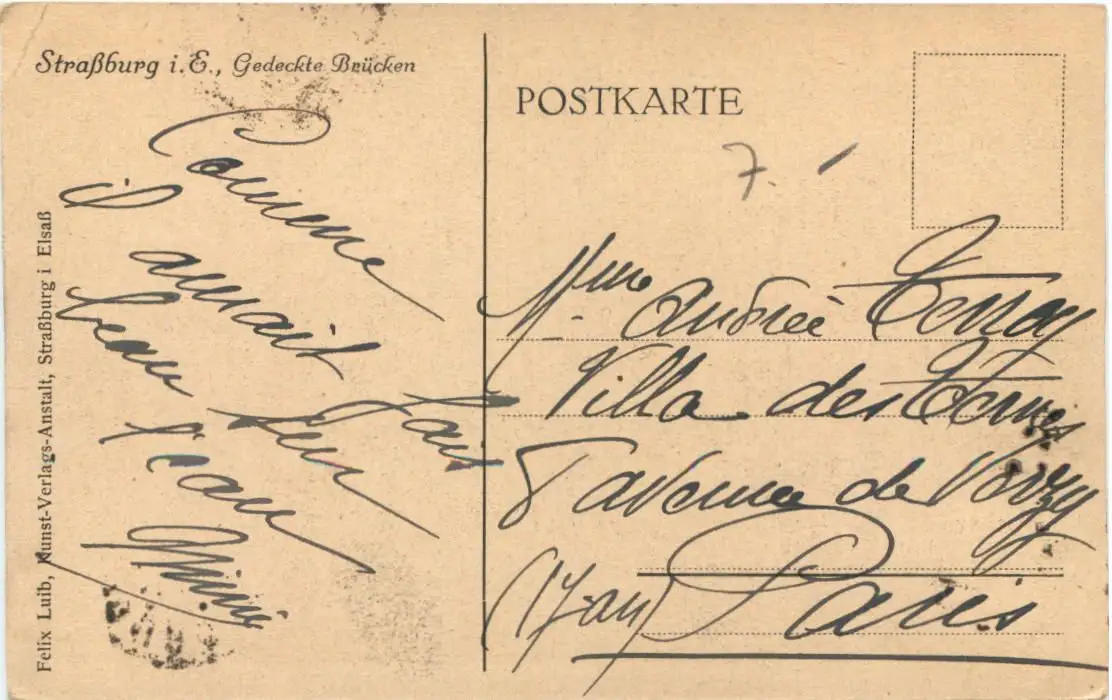 Straßburg i. E., Gedeckte Brücken
Comme
il
aurait
fait
beau sur
l'eau
Mimi
Felix Luib, Kunst-Verlags-Anstalt, Straßburg i Elsaß
POSTKARTE
7.
Mme Andrée Terray
Villa des Ternes
5 avenue de Verzy
(17 arr)
Paris